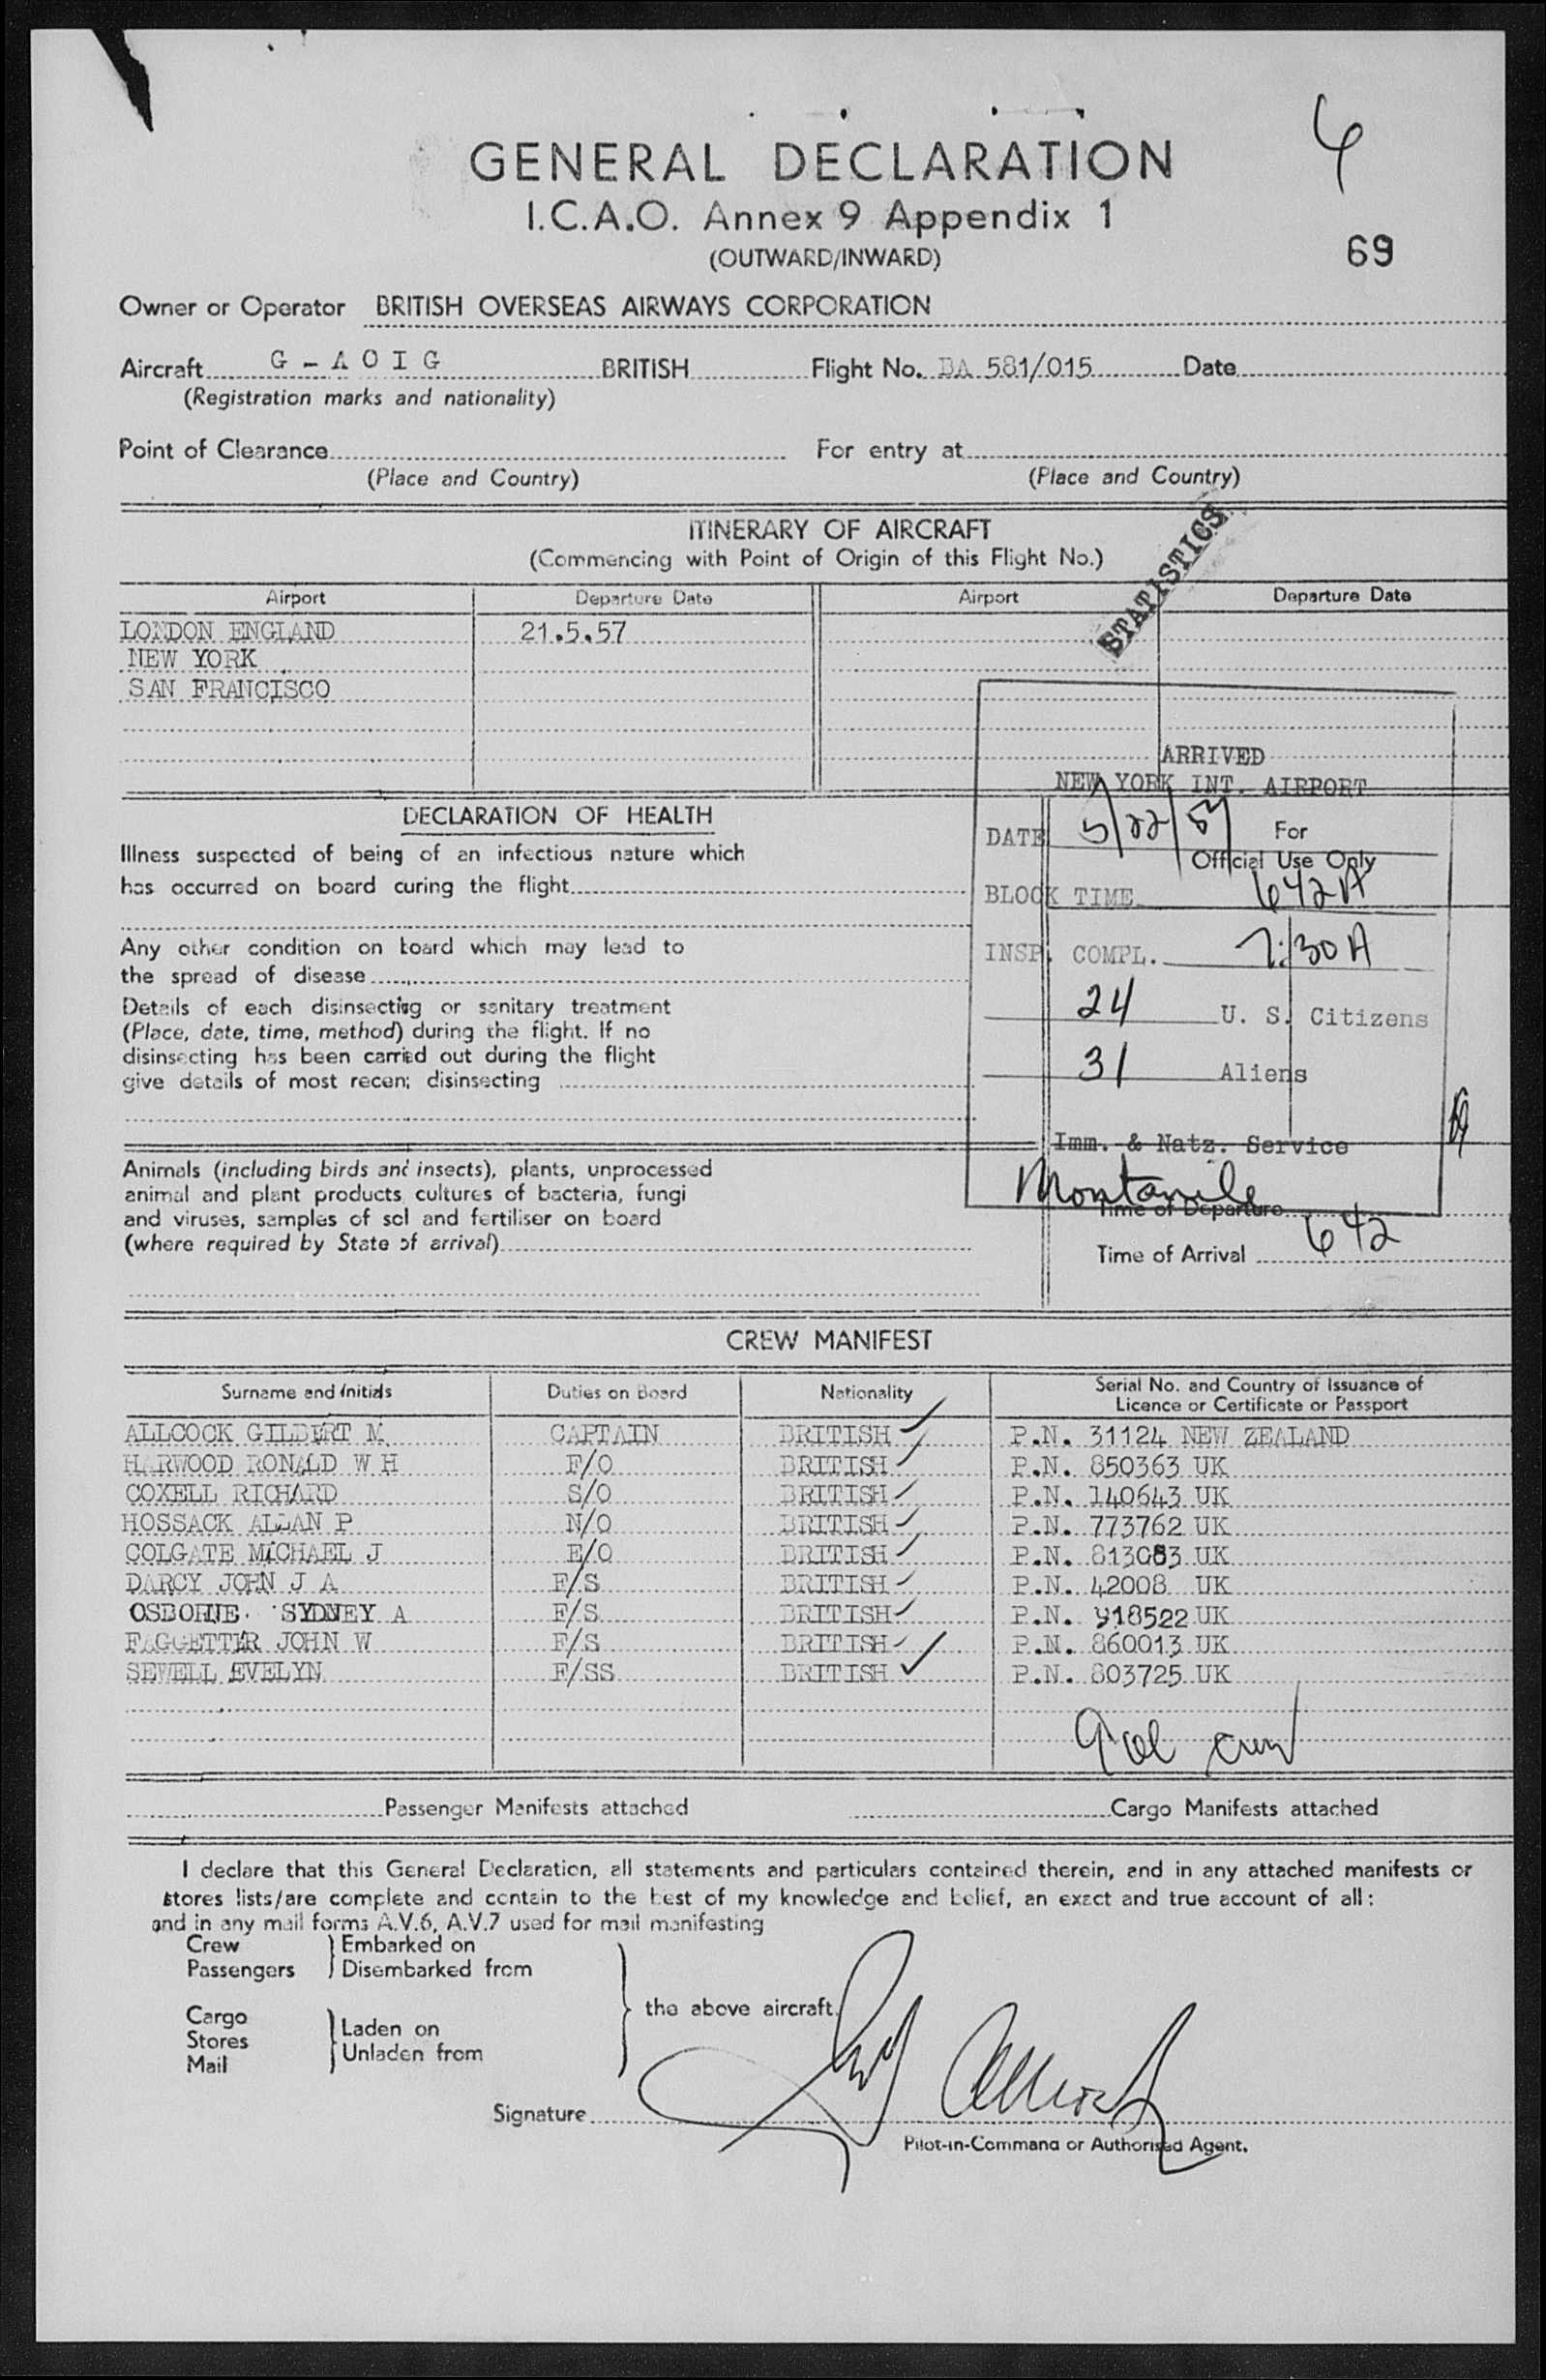 6
GENERAL DECLARATION
I.C.A.O. Annex 9 Appendix 1
(OUTWARD/INWARD)
69
Owner or Operator BRITISH OVERSEAS AIRWAYS CORPORATION
Aircraft G - A O I G BRITISH Flight No. BA 581/015 Date
(Registration marks and nationality)
Point of Clearance For entry at
(Place and Country) (Place and Country)
ITINERARY OF AIRCRAFT
(Commencing with Point of Origin of this Flight No.)
STATISTICS
Airport Departure Date Airport Departure Date
LONDON ENGLAND 21.5.57
NEW YORK
SAN FRANCISCO
ARRIVED
NEW YORK INT. AIRPORT
DATE 5/22/57
For
Official Use Only
BLOCK TIME 642A
INSP. COMPL. 7:30A
24 U. S. Citizens
31 Aliens
Imm. & Natz. Service
DECLARATION OF HEALTH
Illness suspected of being of an infectious nature which
has occurred on board curing the flight
Any other condition on board which may lead to
the spread of disease
Details of each disinsecting or sanitary treatment
(Place, date, time, method) during the flight. If no
disinsecting has been carried out during the flight
give details of most recent disinsecting
Animals (including birds and insects), plants, unprocessed
animal and plant products, cultures of bacteria, fungi
and viruses, samples of soil and fertiliser on board
(where required by State of arrival)
Time of Departure
Time of Arrival 642
CREW MANIFEST
Surname and Initials Duties on Board Nationality Serial No. and Country of Issuance of
Licence or Certificate or Passport
ALLCOCK GILBERT M CAPTAIN BRITISH P.N. 31124 NEW ZEALAND
HARWOOD RONALD W H F/O BRITISH P.N. 850363 UK
COXELL RICHARD S/O BRITISH P.N. 140643 UK
HOSSACK ALLAN P N/O BRITISH P.N. 773762 UK
COLGATE MICHAEL J E/O BRITISH P.N. UK
DARCY JOHN J A F/S BRITISH P.N. 42008 UK
OSBORNE. SYDNEY A F/S BRITISH P.N. 918522 UK
FAGGETTER JOHN W F/S BRITISH P.N. 860013 UK
SEWELL EVELYN F/SS BRITISH P.N. 803725 UK
9 crew
Passenger Manifests attached Cargo Manifests attached
I declare that this General Declaration, all statements and particulars contained therein, and in any attached manifests or
stores lists/are complete and contain to the best of my knowledge and belief, an exact and true account of all:
and in any mail forms A.V.6, A.V.7 used for mail manifesting
Crew Embarked on
Passengers Disembarked from
the above aircraft.
Cargo
Stores Laden on
Mail Unladen from
Signature
Pilot-in-Command or Authorised Agent.